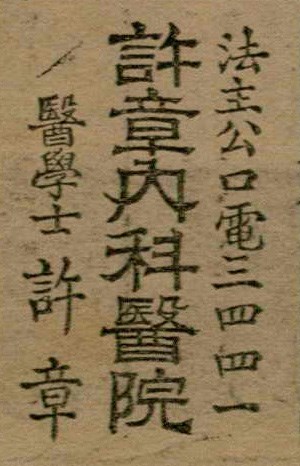 法主公口電三四四一
許章內科醫院
醫學士許章